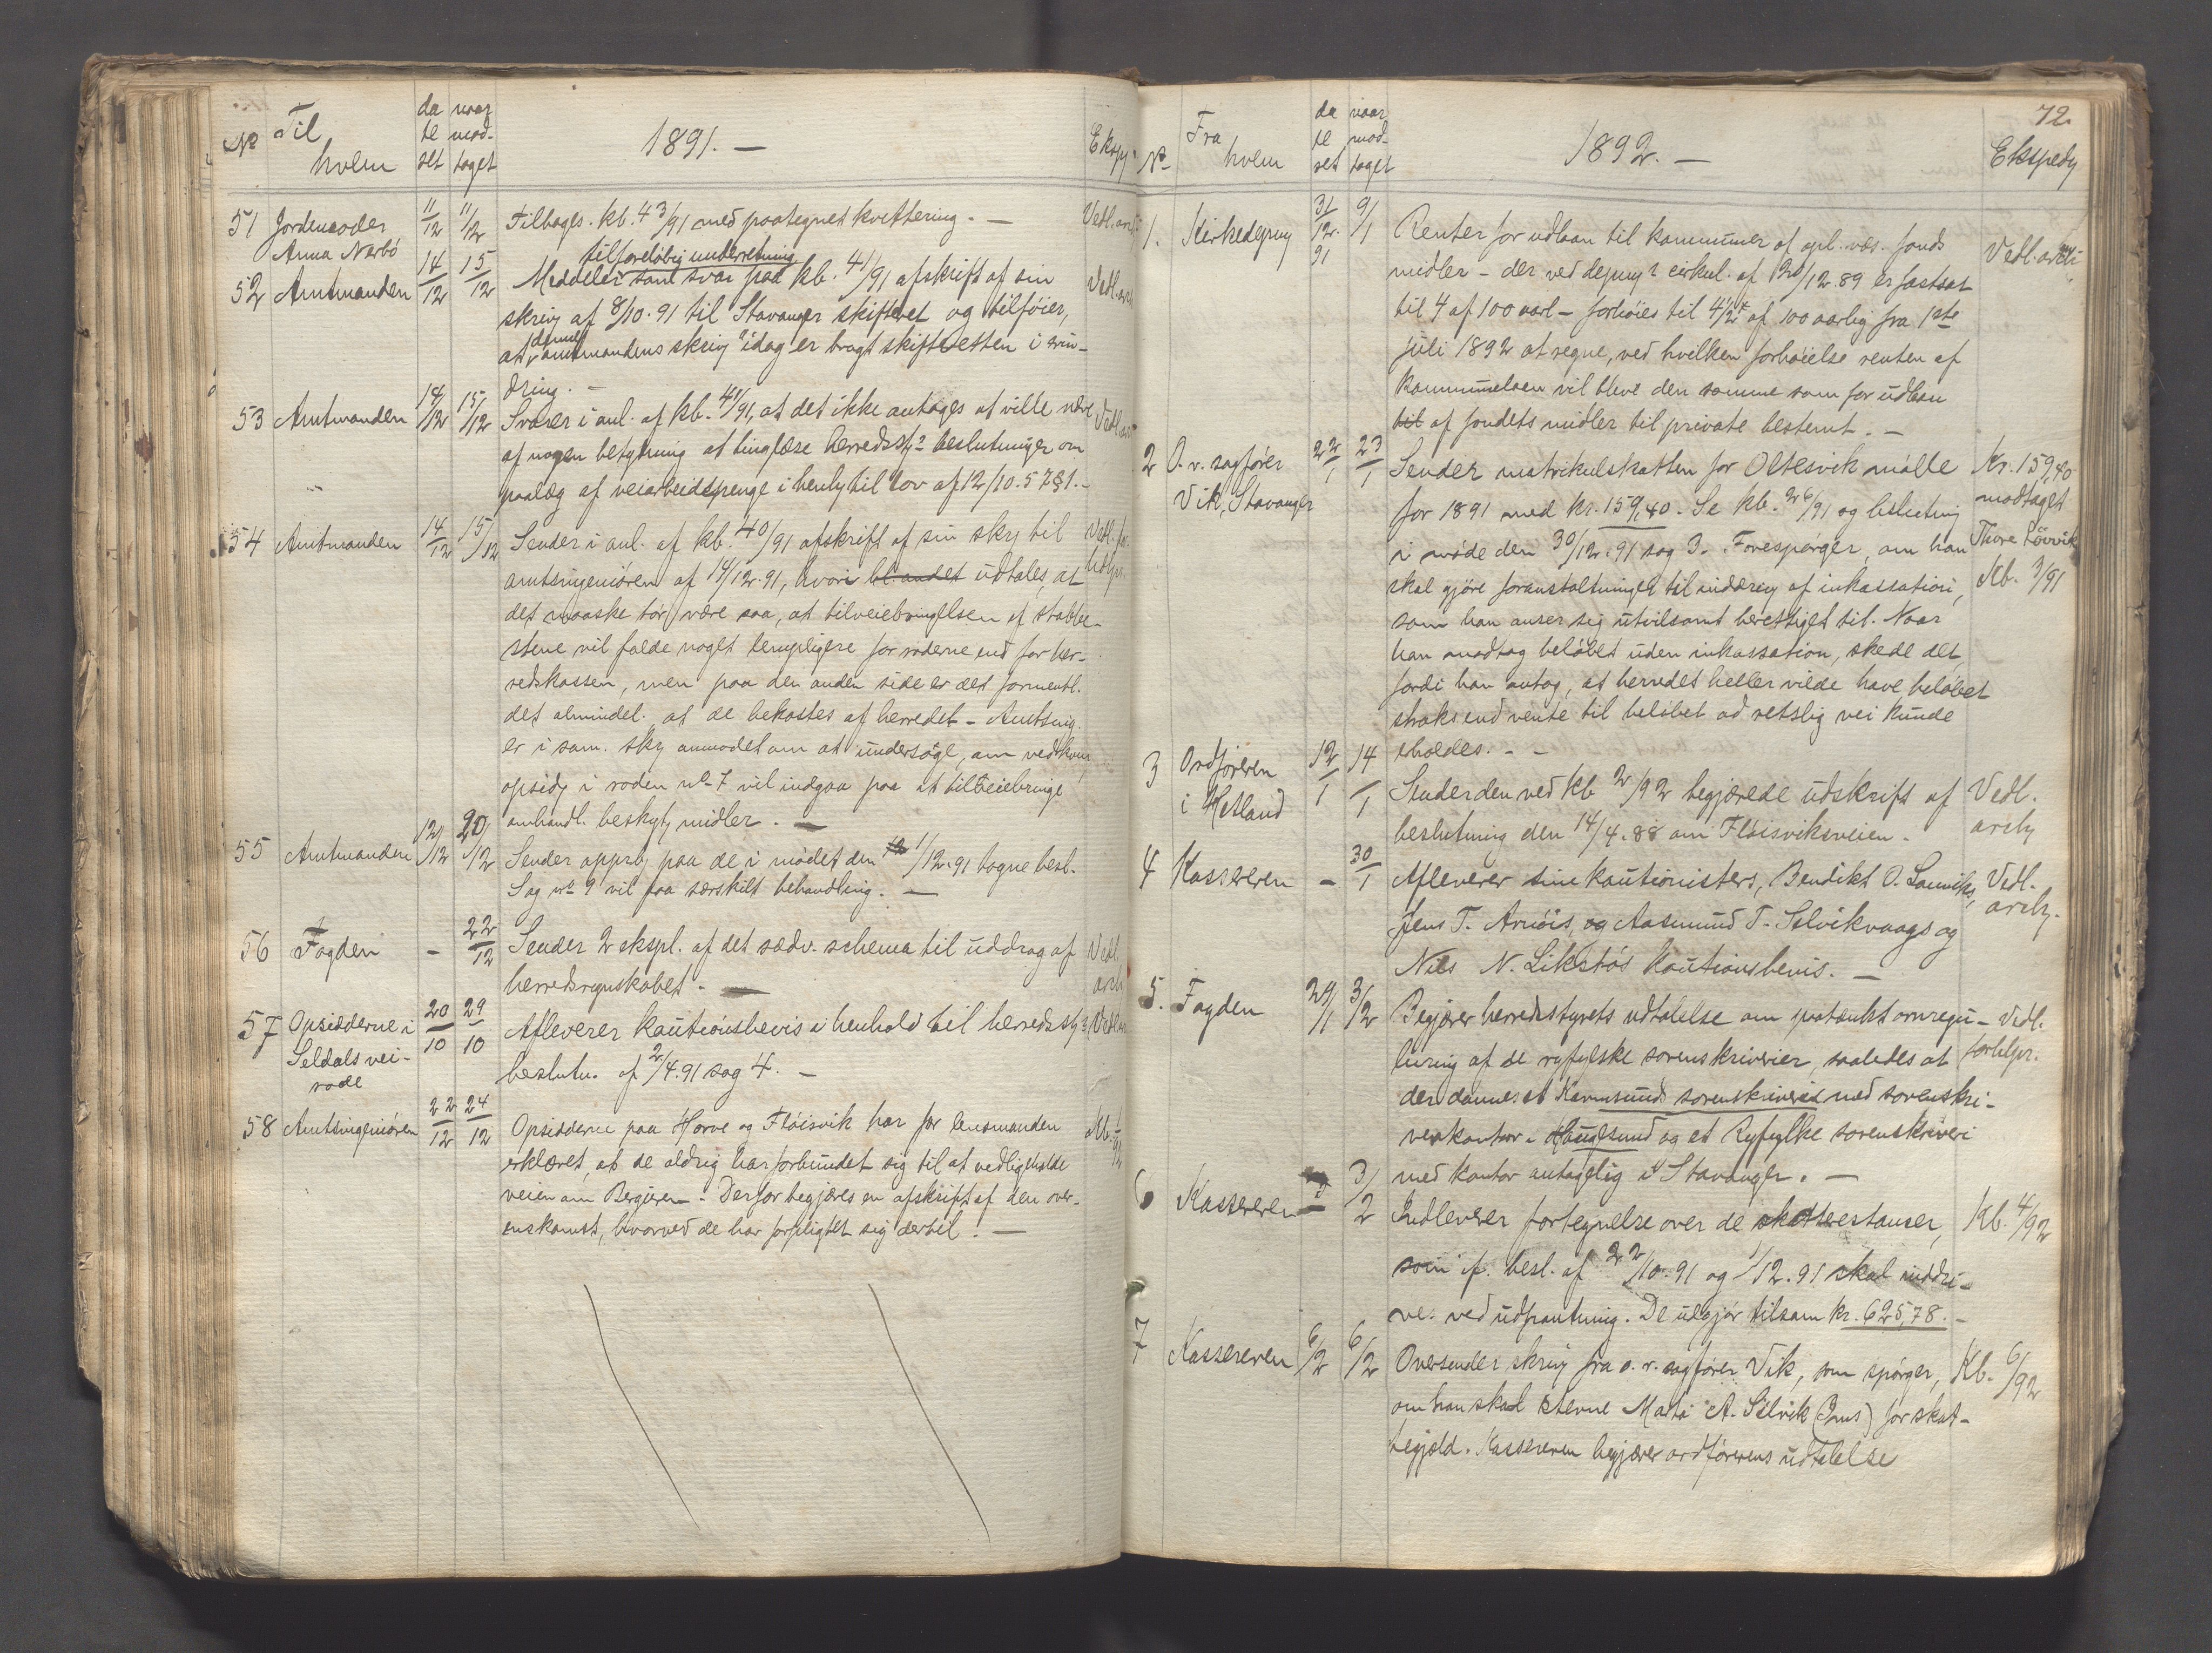 No
Til
hvem
da
te
ret
naar
mod-
taget
1891. —
51 Jordemoder 11/12 11/12 Tilbages. kb. 43/91 med paategnet kvittering. —
Anna Nærbö
tilforelöbig underretning
52 Amtmanden 14/12 15/12 Meddeler som svar paa kb. 41/91 afskrift af sin Vedl.
skriv af 8/10.91 til Stavanger skifteret og tilföier,
denne
at amtmandens skriv idag er bragt skifteretten i erin-
dring. —
53 Amtmanden 14/12 15/12 Svarer i anl. af kb. 41/91, at det ikke antages at ville være
af nogen betydning at tinglæse herredsst. beslutninger om
paalæg af veiarbeidspenge i henh. til lov af 12/10.57 § 1. —
54 Amtmanden 14/12 15/12 Sender i anl. af kb. 40/91 afskrift af sin skr. til Vedl.
amtsingeniören af 14/12.91, hvori bl. andet udtales, at
det maaske tör være saa, at tilveiebringelsen af stabbe-
stene vil falde noget lempeligere for roderne end for her-
redskassen, men paa den anden side er det formentl.
det almindel. at de bekostes af herredet - Amtsing.
er i sam. skr. anmodet om at undersöge, om vedkom.
opsid. i roden No 7 vil indgaa paa at tilveiebringe
omhandl. beskyt. midler. —
55 Amtmanden 12/12 20/12 Sender approb. paa de i mödet den 1/12.91 tagne besl.
Sag No 9 vil faa særskilt behandling. —
56 Fogden - 22/12 Sender 2 ekspl. af det sædv. schema til uddrag af Vedl.
herredsregnskabet. —
57 Opsidderne i 20/10 29/10 Afleverer kautionsbevis i henhold til herredsst.
Seldals vei-
rode
beslutn. af 2/4.91 sag 4. —
58 Amtsingeniören 22/12 24/12 Opsidderne paa Horve og Flöisvik har for lensmanden
erklæret, at de aldrig har forbundet sig til at vedligeholde
veien om Bergjeren - Derfor begjæres en afskrift af den over-
enskomst, hvorved de har forpligtet sig dertil. —
72.
No
Fra
hvem
da
te
ret
naar
mod-
taget
1892. —
Ekspedr.
1. Kirkedepmg 31/12.91 9/1 Renter for udlaan til kommuner af opl. væs. fonds Vedl. arch
midler - der ved depmg. cirkul. af 20/12.89 er fastsat
til 4 af 100 aarl - forhöies til 4 1/2 af 100 aarlig fra 1ste
juli 1892 at regne, ved hvilken forhöielse renten af
kommunelaan vil blive den samme som for udlaan
til af fondets midler til private bestemt. —
2 O. r. sagförer 22/1 23/1 Sender matrikulskatten for Oltesvik mölle Kr. 159,40
Vik, Stavanger for 1891 med kr. 159,40. Se kb. 26/91 og beslutning modtaget
i möde den 30/12.91 sag 3. Forespörger, om han Thore Lövvik
skal gjöre foranstaltninger til inddrivg af inkassation, Kb. 3/91
som han anser sig utvilsomt berettiget til. Naar
han modtog belöbet uden inkassation, skede det,
fordi han antog, at herredet heller vilde have belöbet
straks end vente til belöbet ad retslig vei kunde
eholdes. - -
3 Ordföreren 12/1 14/1 Sender den ved kb 2/92 begjærede udskrift af Vedl.
i Hetland beslutning den 14/4.88 om Flöisviksveien. arch
4 Kassereren - 30/1 Afleverer sine kautionisters, Bendikt O. Lauviks, Vedl.
Jens T. Arnöis, og Aasmund T. Selvikvaags og arch.
Nils N. Likstös kautionsbevis. —
5. Fogden 29/1 3/2 Begjærer herredsstyrets udtalelse om paatænkt omregu- Vedl.
lering af de ryfylske sorenskriverier, saaledes at forhlpr.
der dannes et Karmsunds sorenskriveri med sorenskri-
verkontor i Haugesund og et Ryfylke sorenskriveri
med kontor antagelig i Stavanger. —
6 Kassereren - 3/2 Indleverer fortegnelse over de skatterestanser, Kb. 4/92
som if. besl. af 22/10.91 og 1/12.91 skal inddri-
ves ved udpantning. De udgjör tilsam kr. 625,78. —
7 Kassereren 6/2 6/2 Oversender skriv fra o. r. sagförer Vik, som spörger, Kb. 6/92
om han skal stevne Marta A. Selvik for skat-
tegjæld. Kassereren begjærer ordförerens udtalelse